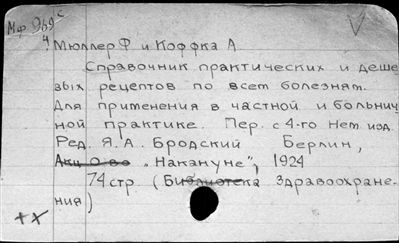 Мф 969 с
4
Мюллер Ф и Коффка А
Справочник практических и деше
вых рецептов по всем болезням.
Для применения в частной и больнич
ной практике. Пер. с 4-го нем изд.
Ред. Я. А. Бродский Берлин,
Акц О-во „Накануне", 1924
74 стр. (Библиотека Здравоохране-
ния)
++